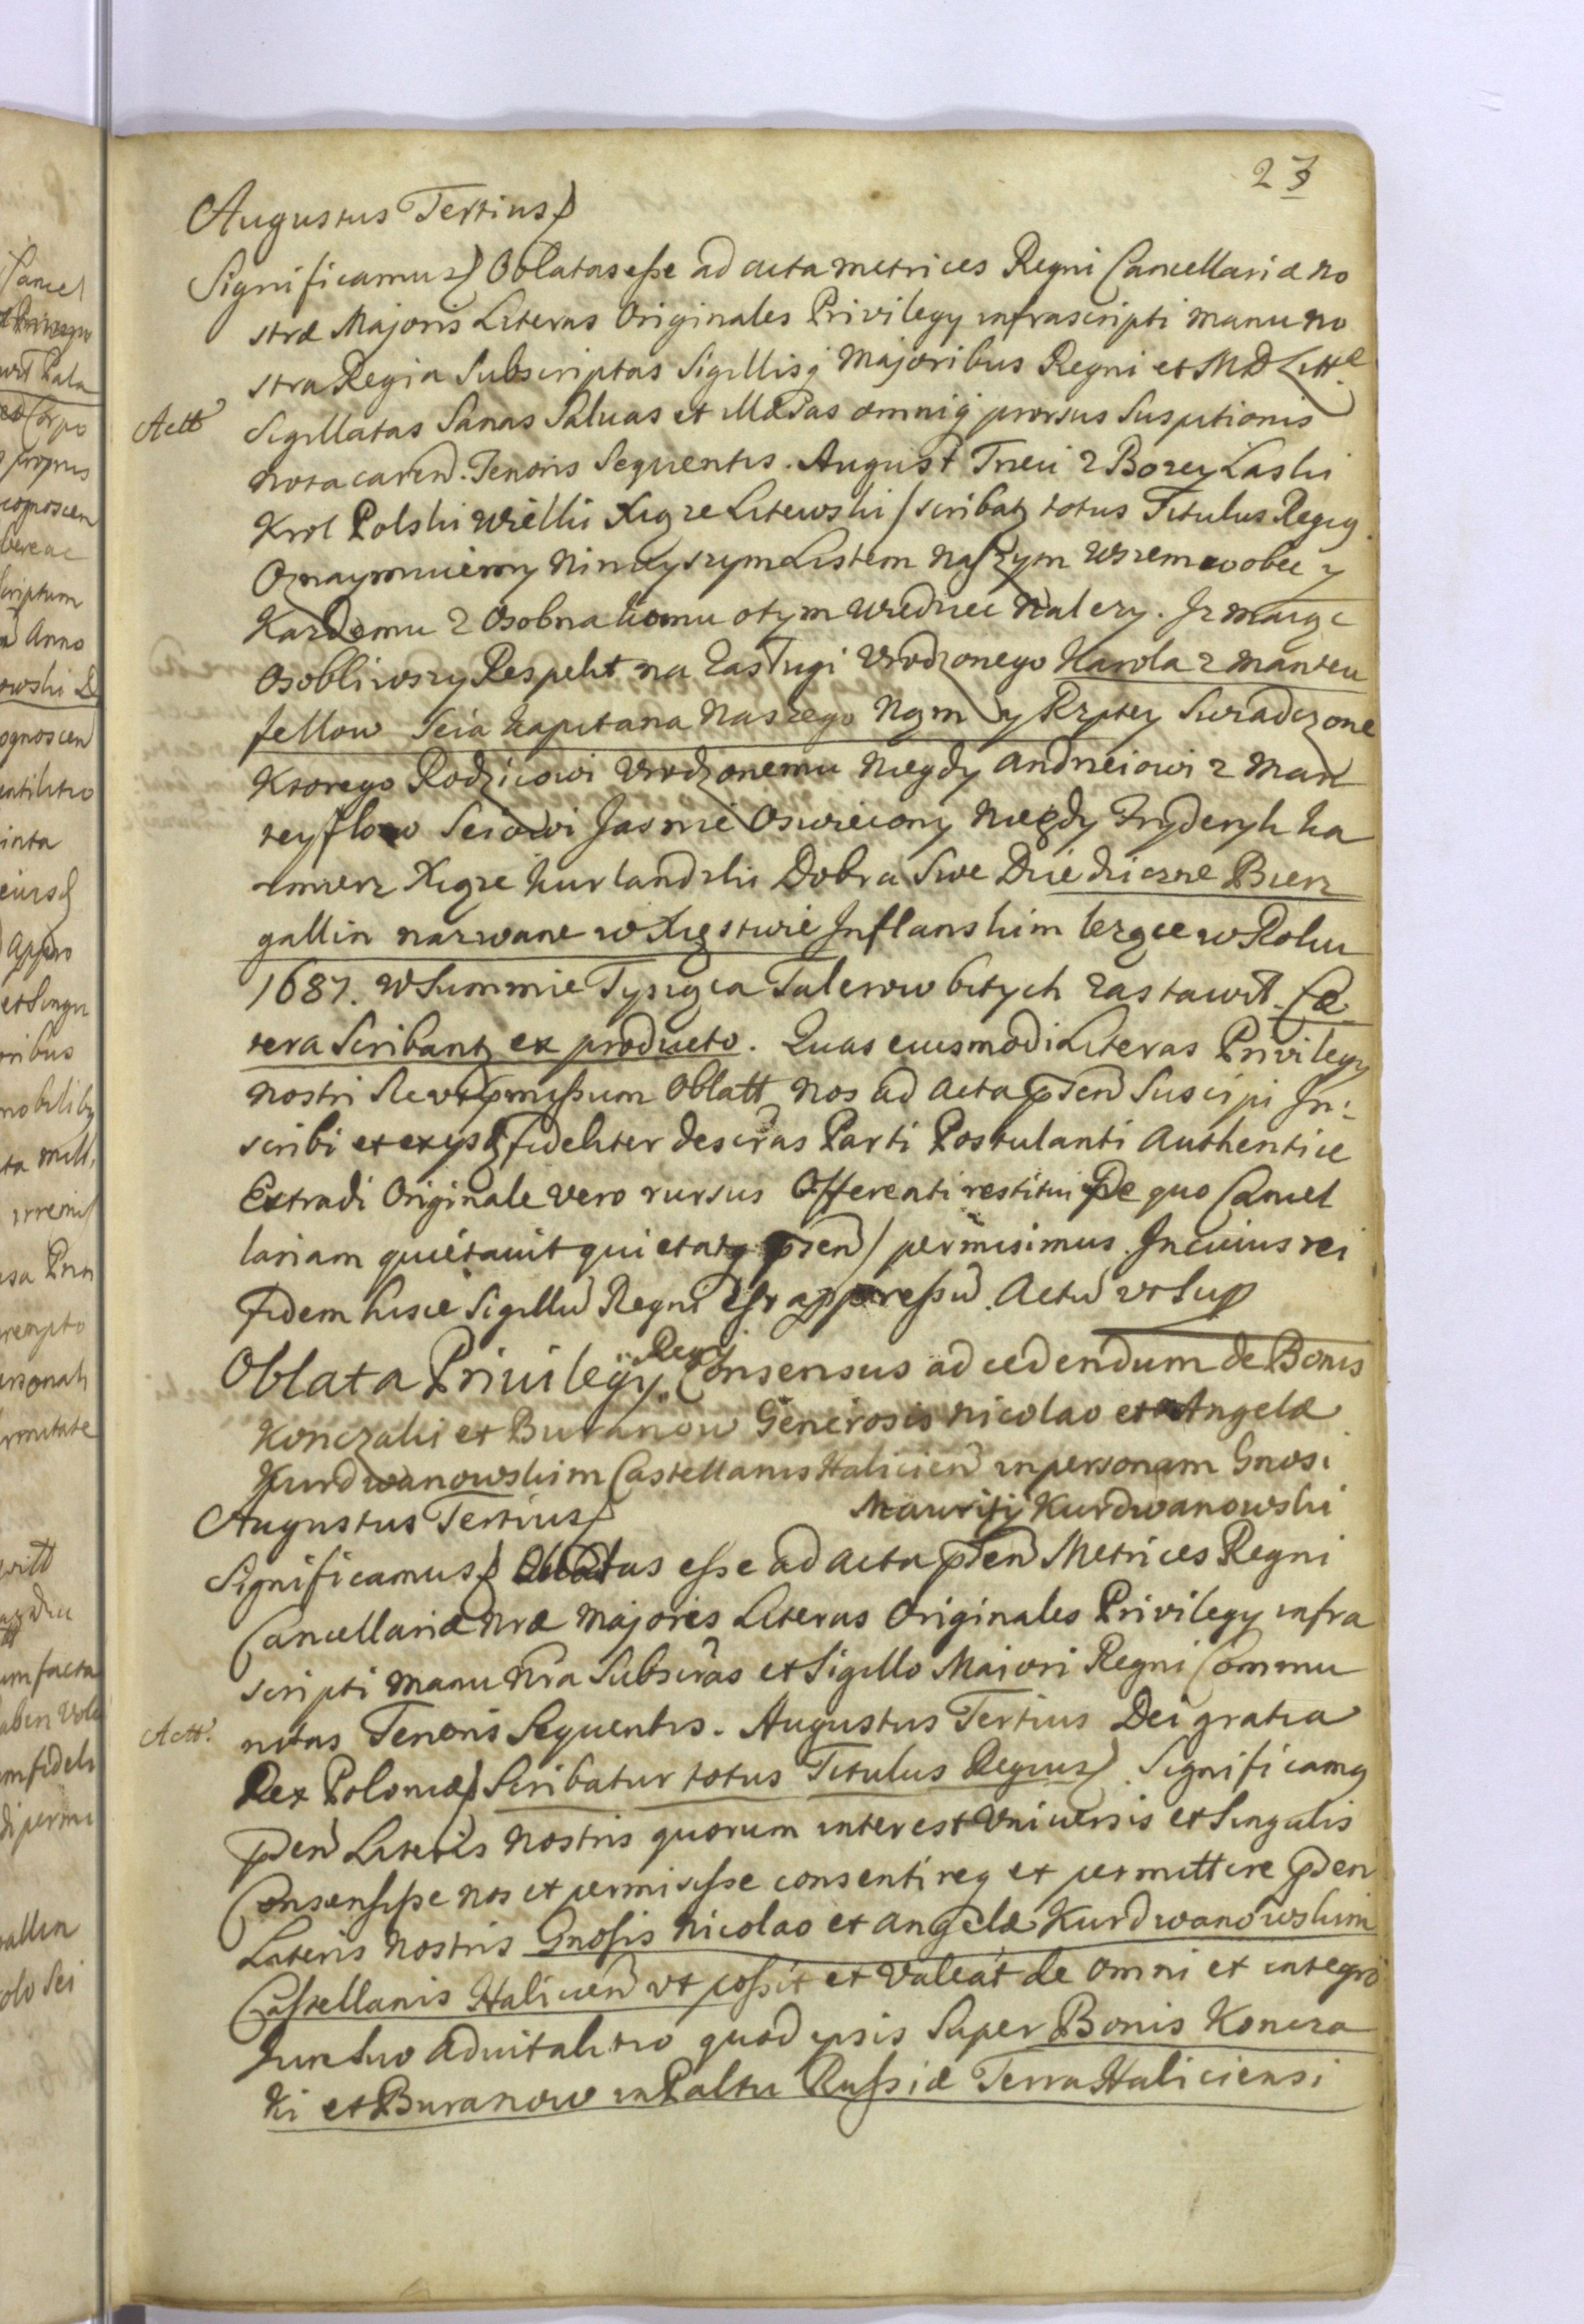 23
Augustus Tertius
Significamus Oblatas esse ad acta metrices Regni Cancellariæ no
stræ Majoris Literas Originales Privilegy infrascripti manu no
stra Regia Subscriptas Sigillisq Majoribus Regni et MD Litt.
Actt
Sigillatas Sanas Saluas et Illæsas omniq prorsus Suspitionis
nota caren. Tenoris Sequentis. August Trzeci z Bozey Laski
Krol Polski Wielki Xiąze Litewski / scribat totus Titulus Regig
Oznaymuiemy Ninieyszym Listem Naszym wszem wobec y
Kazdemu z Osobna komu otym wiedziec Nalezy. Iz maiąc
Osobliwszy Respekt na Zasługi Vrodzonego Karola z manteu
fellow Seia kapitana Naszego Nam y Rzptey Swiadczone
Ktorego Rodzicowi Vrodzonemu Niegdy Andrzeiowi z Man
teyflow Seiowi Jasnie Oswiecony Niegdy Fryderyk Ka
zmierz Xiąze kurlandzki Dobra Swe Dziedziczne Bierz
gallin nazwane w Xięstwie Inflanskim lezące w Roku
1687. w Summie Tysiąca Talerow bitych zastawił. Cæ
tera Scribant ex producto. Quas eiusmodi Literas Privilegy
Nostri Se vt pmissum Oblatt Nos ad Acta pnden Suscipi In:
scribi et exysq fideliter descras Parti Postulanti Authentice
Extradi Originale vero rursus Offerenti restitui De quo Cancel
lariam quietauit quietatq psen / permisimus. In cuius rei
fidem hisce Sigillu Regni Est appressu. Actu vt Sup
Oblata Priuilegÿ Regÿ Consensus ad cedendum de Bonis
Konczaki et Buranow Generosis Nicolao et Angelæ
Kurdwanowskim Castellanis Halicien in personam Gnosi
Mauritÿ Kurdwanowski
Augustus Tertius
Significamus Oblatas esse ad Acta pnden Metrices Regni
Cancellariæ Nræ Majoris Literas Originales Privilegy infra
scripti manu Nra Subscras et Sigillo Maiori Regni Commu
Actt.
nitas Tenoris Sequentis. Augustus Tertius Dei gratia
Rex Poloniæ Scribatur totus Titulus Regius Significamq
pnden Literis Nostris quorum interest Vniuersis et Singulis
Consensisse nos et permisisse consentireq et permittere pnden
Literis Nostris Gnosis Nicolao et Angelæ Kurdwanowskim
Castellanis Halicien vt possit et Valeat de Omni et integro
Jure Suo Aduitalitio quod ipsis Super Bonis Koncza
ki et Buranow in Paltu Russiæ Terra Haliciensi